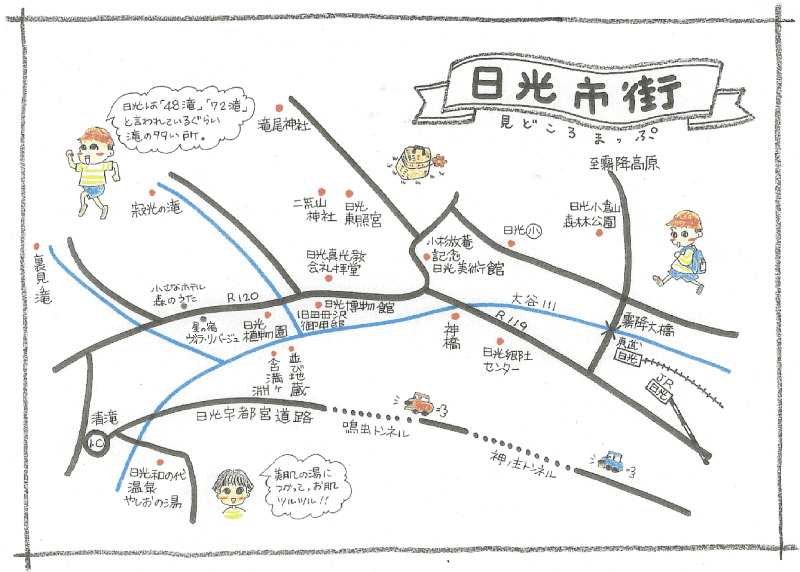 日光市街
見どころまっぷ
日光は「48滝」「72滝」
と言われているぐらい
滝の多い所。
滝尾神社
至霧降高原
寂光の滝
二荒山
神社
日光
東照宮
日光小倉山
森林公園
日光小
小杉放菴
記念
日光美術館
裏見ノ滝
日光真光教
会礼拝堂
小さなホテル
森のうた
R120
日光博物館
大谷川
星の宿
ヴィラ・リバージュ
日光
植物園
旧田母沢
御用邸
R119
神橋
霧降大橋
東武
日光
日光郷土
センター
JR
日光
含満ヶ淵
並び地蔵
清滝
I.C
日光宇都宮道路
鳴虫トンネル
神ノ主トンネル
日光和の代
温泉
やしおの湯
美肌の湯に
つかって、お肌
ツルツル!!